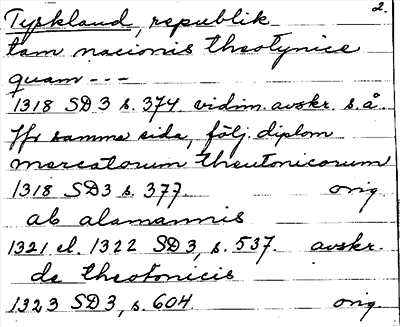 2.
Tyskland, republik
tam nacionis theotynice
quam - - -
1318 SD 3 s. 374 vidim. avskr. s.å.
Jfr samma sida, följ. diplom
mercatorum theutonicorum
1318 SD 3 s. 377. orig.
ab alamannis
1321 el. 1322 SD 3, s. 537. avskr.
de theotonicis
1323 SD 3, s. 604. orig.